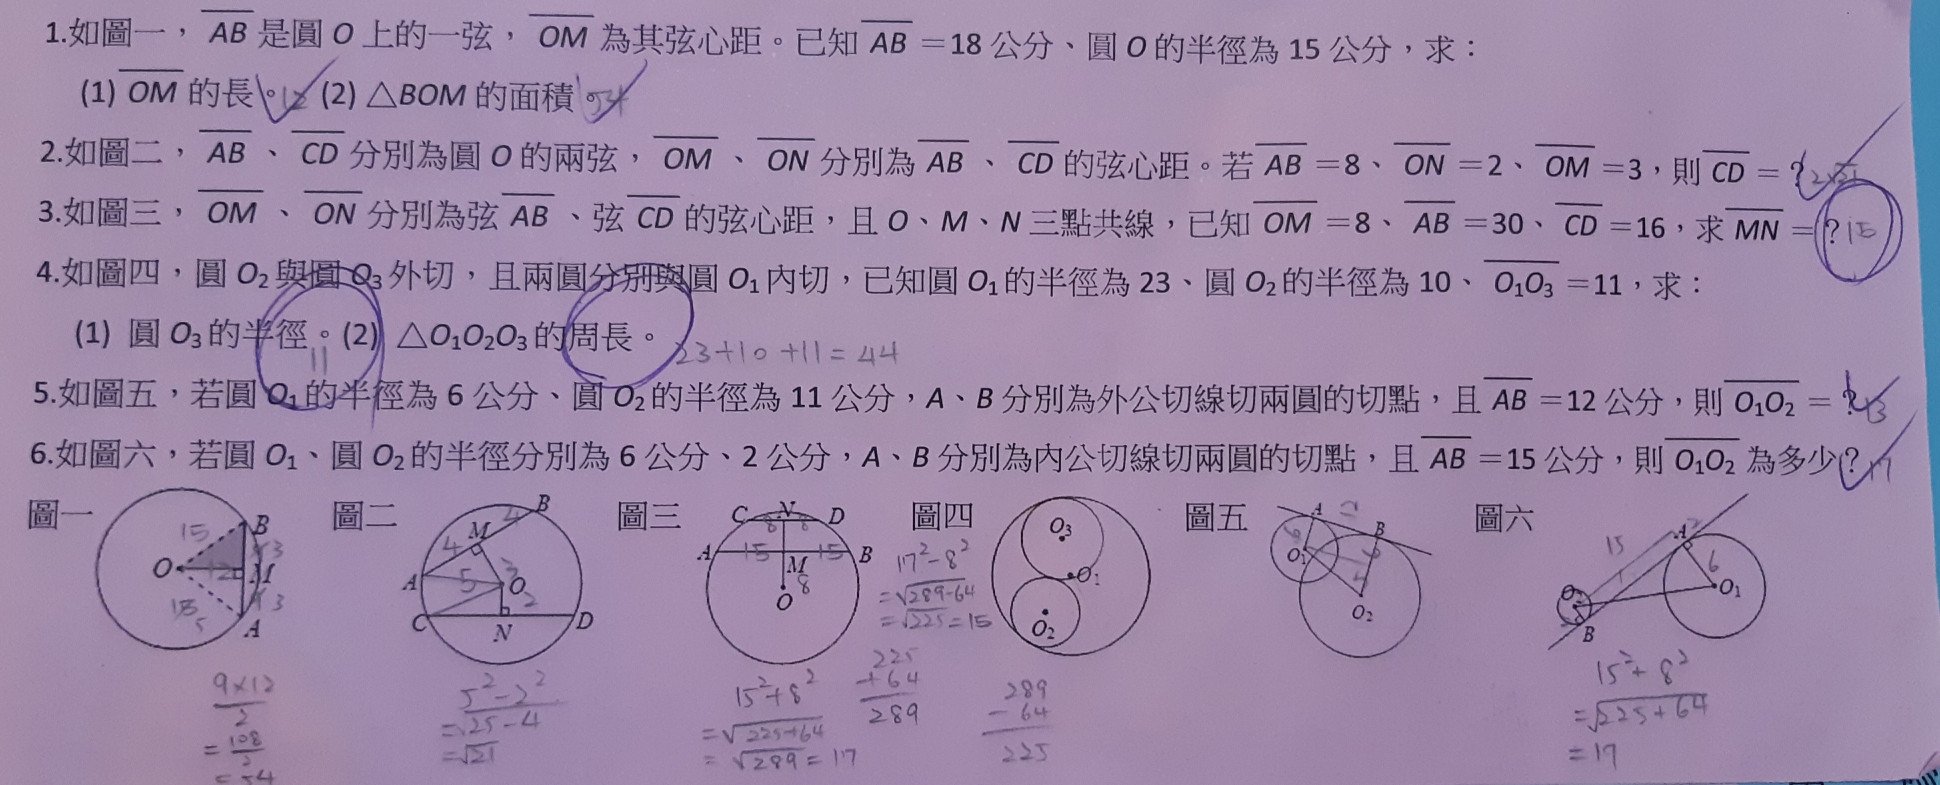 1.如圖一，AB 是圓 O 上的一弦，OM 為其弦心距。已知 AB =18 公分、圓 O 的半徑為 15 公分，求：
(1) OM 的長。12 (2) △BOM 的面積。54
2.如圖二，AB、CD 分別為圓 O 的兩弦，OM、ON 分別為 AB、CD 的弦心距。若 AB =8、ON =2、OM =3，則 CD =？2√21
3.如圖三，OM、ON 分別為弦 AB、弦 CD 的弦心距，且 O、M、N 三點共線，已知 OM =8、AB =30、CD =16，求 MN =？15
4.如圖四，圓 O₂ 與圓 O₃ 外切，且兩圓分別與圓 O₁ 內切，已知圓 O₁ 的半徑為 23、圓 O₂ 的半徑為 10、O₁O₃ =11，求：
(1) 圓 O₃ 的半徑。(2) △O₁O₂O₃ 的周長。
11 23+10+11=44
5.如圖五，若圓 O₁ 的半徑為 6 公分、圓 O₂ 的半徑為 11 公分，A、B 分別為外公切線切兩圓的切點，且 AB =12 公分，則 O₁O₂ =？13
6.如圖六，若圓 O₁、圓 O₂ 的半徑分別為 6 公分、2 公分，A、B 分別為內公切線切兩圓的切點，且 AB =15 公分，則 O₁O₂ 為多少？17
圖一
15 B
O 12 M
15 A
9×12
2
=108
2
=54
圖二
4 B
M
4
A 5 3 O
2
C N D
5²-2²
=√25-4
=√21
圖三
C N D
8 8
A 15 15 B
M
8
O
15²+8²
=√225+64
=√289=17
225
+64
289
圖四
17²-8²
=√289-64
=√225=15
O₃
O₁
O₂
289
-64
225
圖五
A
B
6
O₁
O₂
圖六
15 A
6
O₂ O₁
B
15²+8²
=√225+64
=17